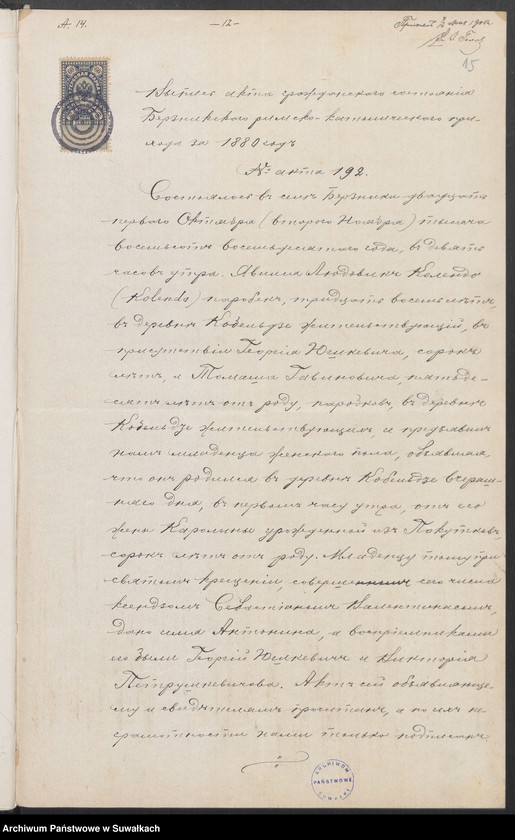 А. 14.
—12—
15
Выпись акта гражданского состоянiя
Бержникского римско-католического при-
хода за 1880 годъ
№ акта 192.
Состоялось въ селѣ Бержники двадцать
перваго Октября (втораго Ноября) тысяча
восемьсотъ восемьдесятаго года, въ девять
часовъ утра. Явился Людовикъ Колендо
(Kolendo) паробекъ, тридцать восемь лѣтъ,
въ деревнѣ жительствующiй, въ
присутствiи Георгiя Юшкевича, сорокъ
лѣтъ, и Томаша Гавиновича, пятьде-
сятъ лѣтъ отъ роду, паробковъ, въ деревнѣ
жительствующихъ, и предъявилъ
намъ младенца женскаго пола, объявляя,
что онъ родился въ деревнѣ вчераш-
няго дня, въ первомъ часу утра, отъ его
жены Каролины урожденной изъ
сорокъ лѣтъ отъ роду. Младенцу тому при
святомъ крещенiи, совершенномъ сего числа
ксендзомъ Севастiаномъ Валентиновичемъ,
дано имя Антонина, а восприемниками
его были Георгiй Юшкевичъ и Викторiя
Петрушкевичова. Актъ сей объявляюще-
му и свидѣтелямъ прочитанъ, а по ихъ не-
грамотности нами только подписанъ.
ARCHIWUM
PAŃSTWOWE
Archiwum Państwowe w Suwałkach